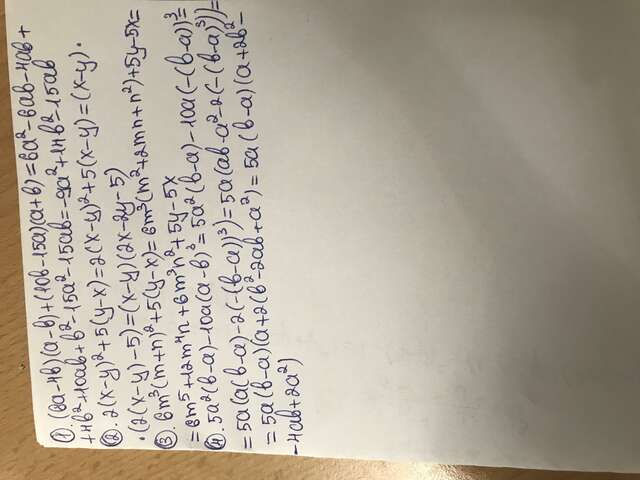 ① (6a-4b)(a-b)+(10b-15a)(a+b)=6a²-6ab-4ab+
+4b²+10ab+b²-15a²-15ab=-9a²+14b²-15ab
② 2(x-y)²+5(y-x)=2(x-y)²+5(x-y)=(x-y)·
·(2(x-y)-5)=(x-y)(2x-2y-5)
③ 6m³(m+n)²+5(y-x)=6m³(m²+2mn+n²)+5y-5x=
=6m⁵+12m⁴n+6m³n²+5y-5x
④ 5a²(b-a)-10a(a-b)³=5a²(b-a)-10a(-(b-a))³=
=5a(a(b-a)-2(-(b-a))³)=5a(ab-a²-2(-(b-a)³))=
=5a(b-a)(a+2(b²-2ab+a²)=5a(b-a)(a+2b²-
-4ab+2a²)